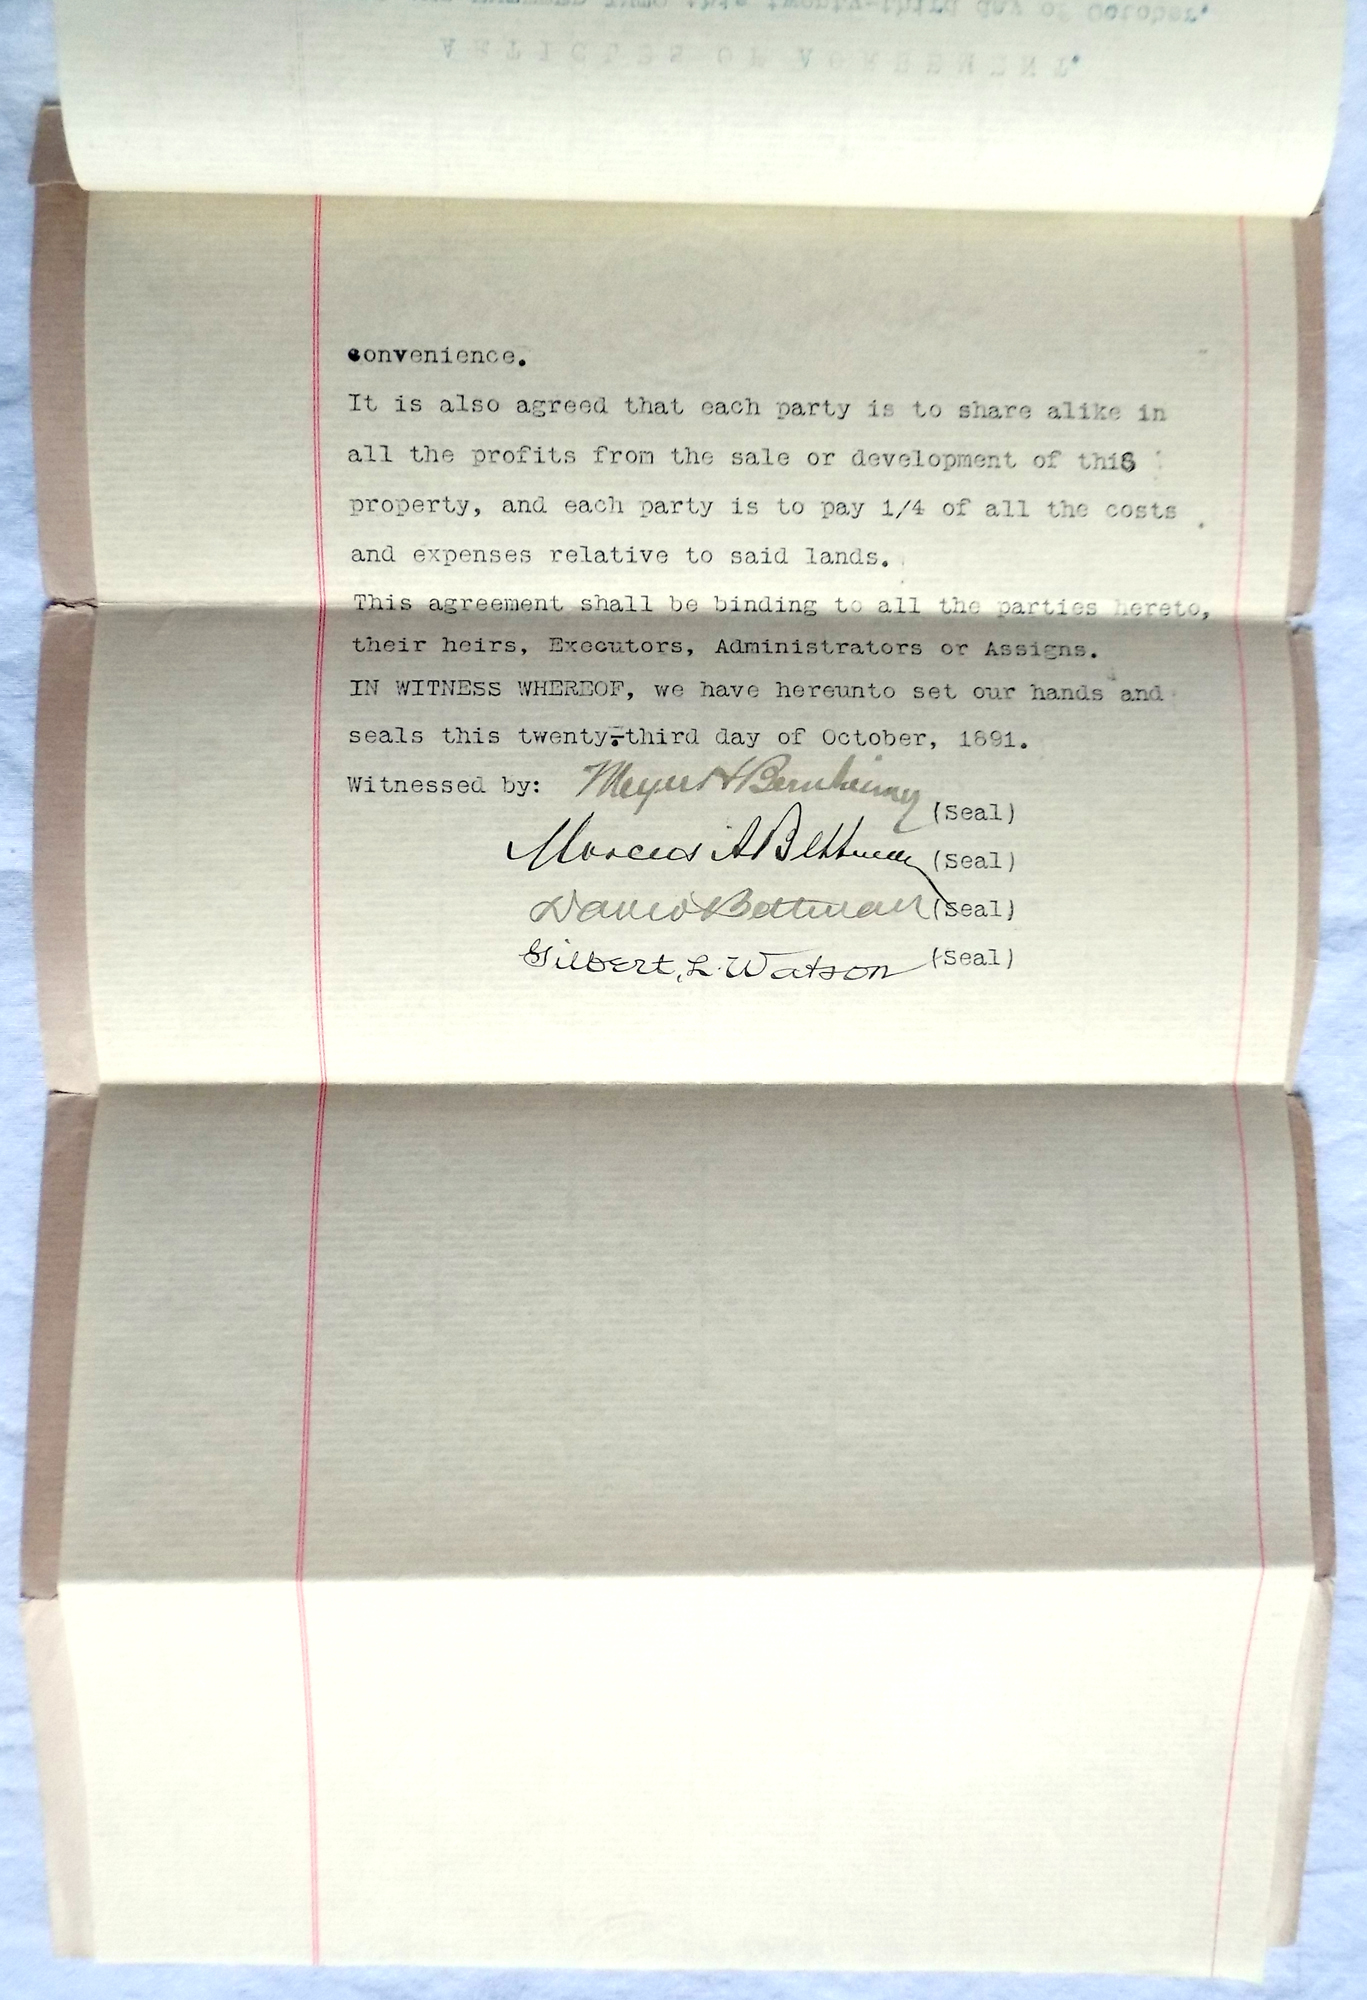 ARTICLES OF AGREEMENT.
this twenty-third day of October.
convenience.
It is also agreed that each party is to share alike in
all the profits from the sale or development of this
property, and each party is to pay 1/4 of all the costs
and expenses relative to said lands.
This agreement shall be binding to all the parties hereto,
their heirs, Executors, Administrators or Assigns.
IN WITNESS WHEREOF, we have hereunto set our hands and
seals this twenty-third day of October, 1891.
Witnessed by: Meyer H Bernheimer (Seal)
Marcus A Bettman (Seal)
David Bettman (Seal)
Gilbert, L. Watson (Seal)